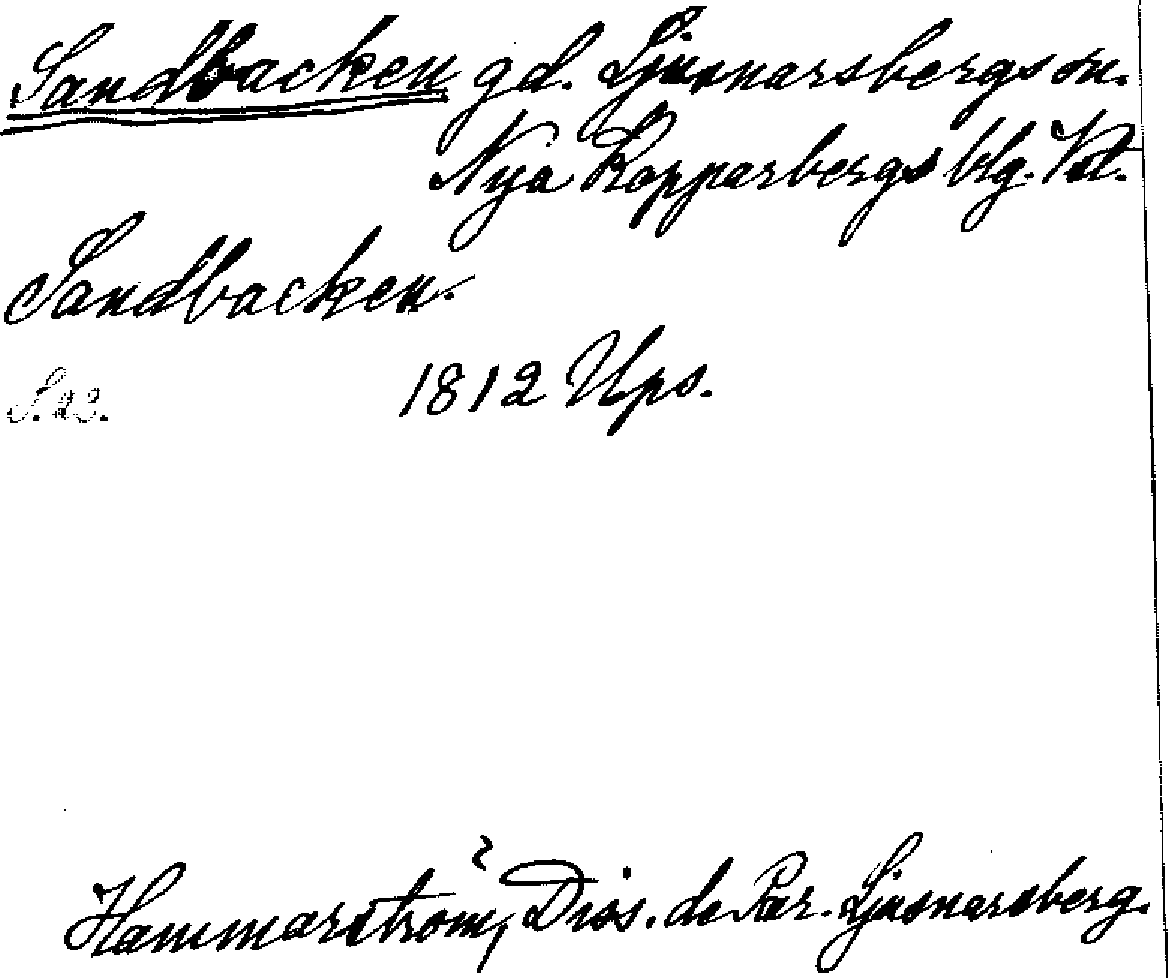 Sandbacken gd. Ljusnarsbergs sn.
Nya Kopparbergs blg. Vstl.
Sandbacken.
S. 23. 1812 Ups.
Hammarström, Diss. de Par. Ljusnarsberg.